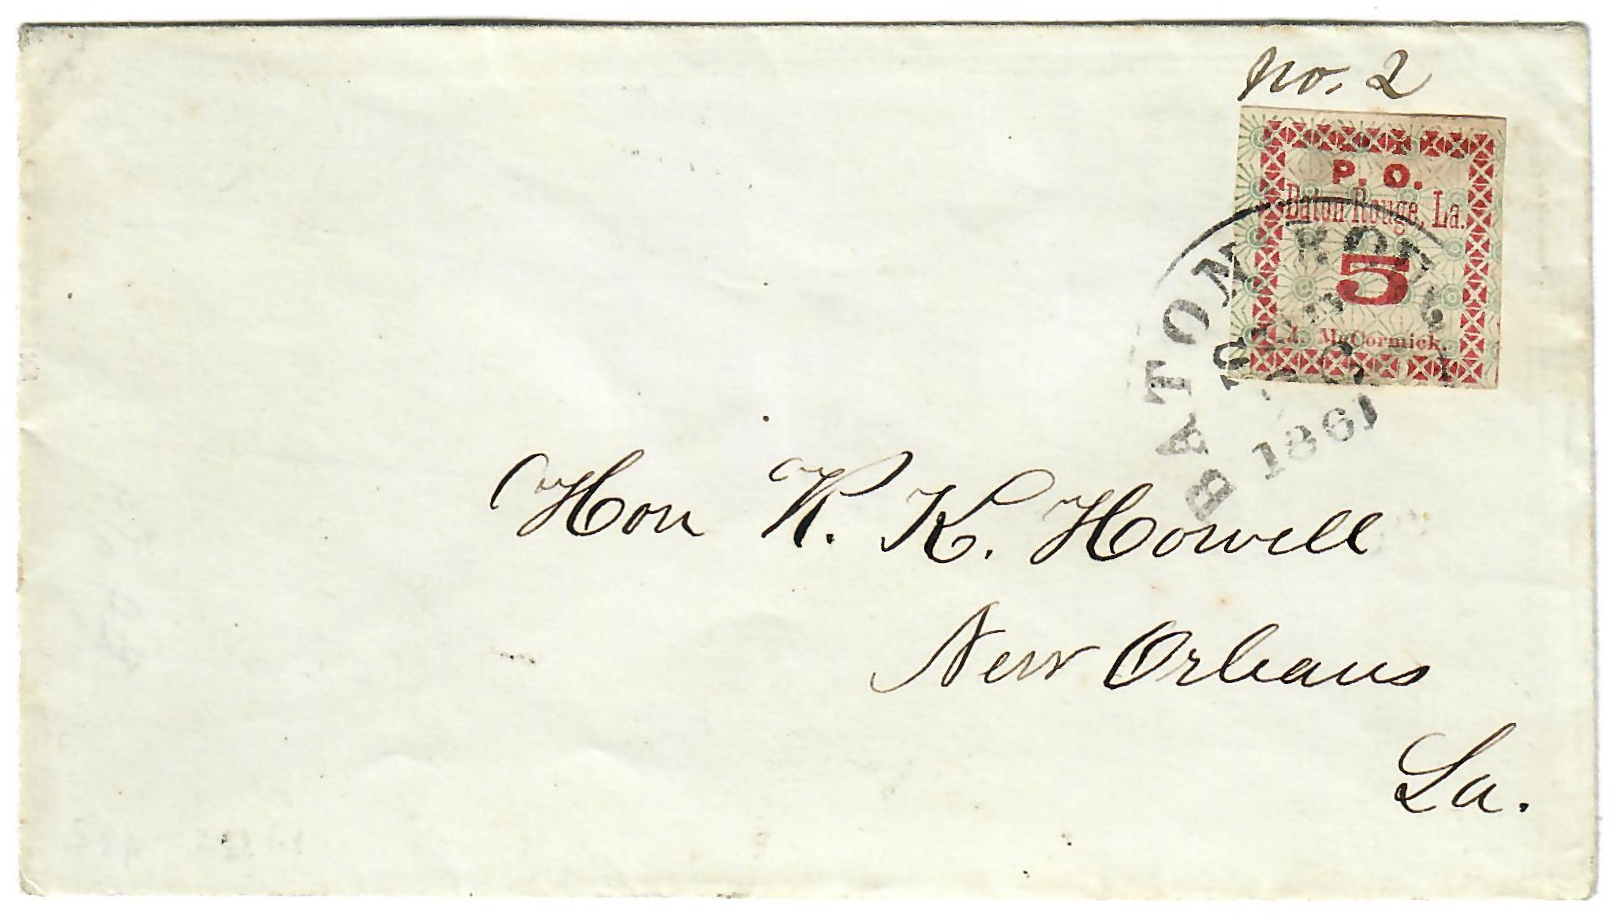 no. 2
P. O.
Baton Rouge, La.
5
J. McCormick.
BATON ROUGE
1861
Hon R. K. Howell
New Orleans
La.